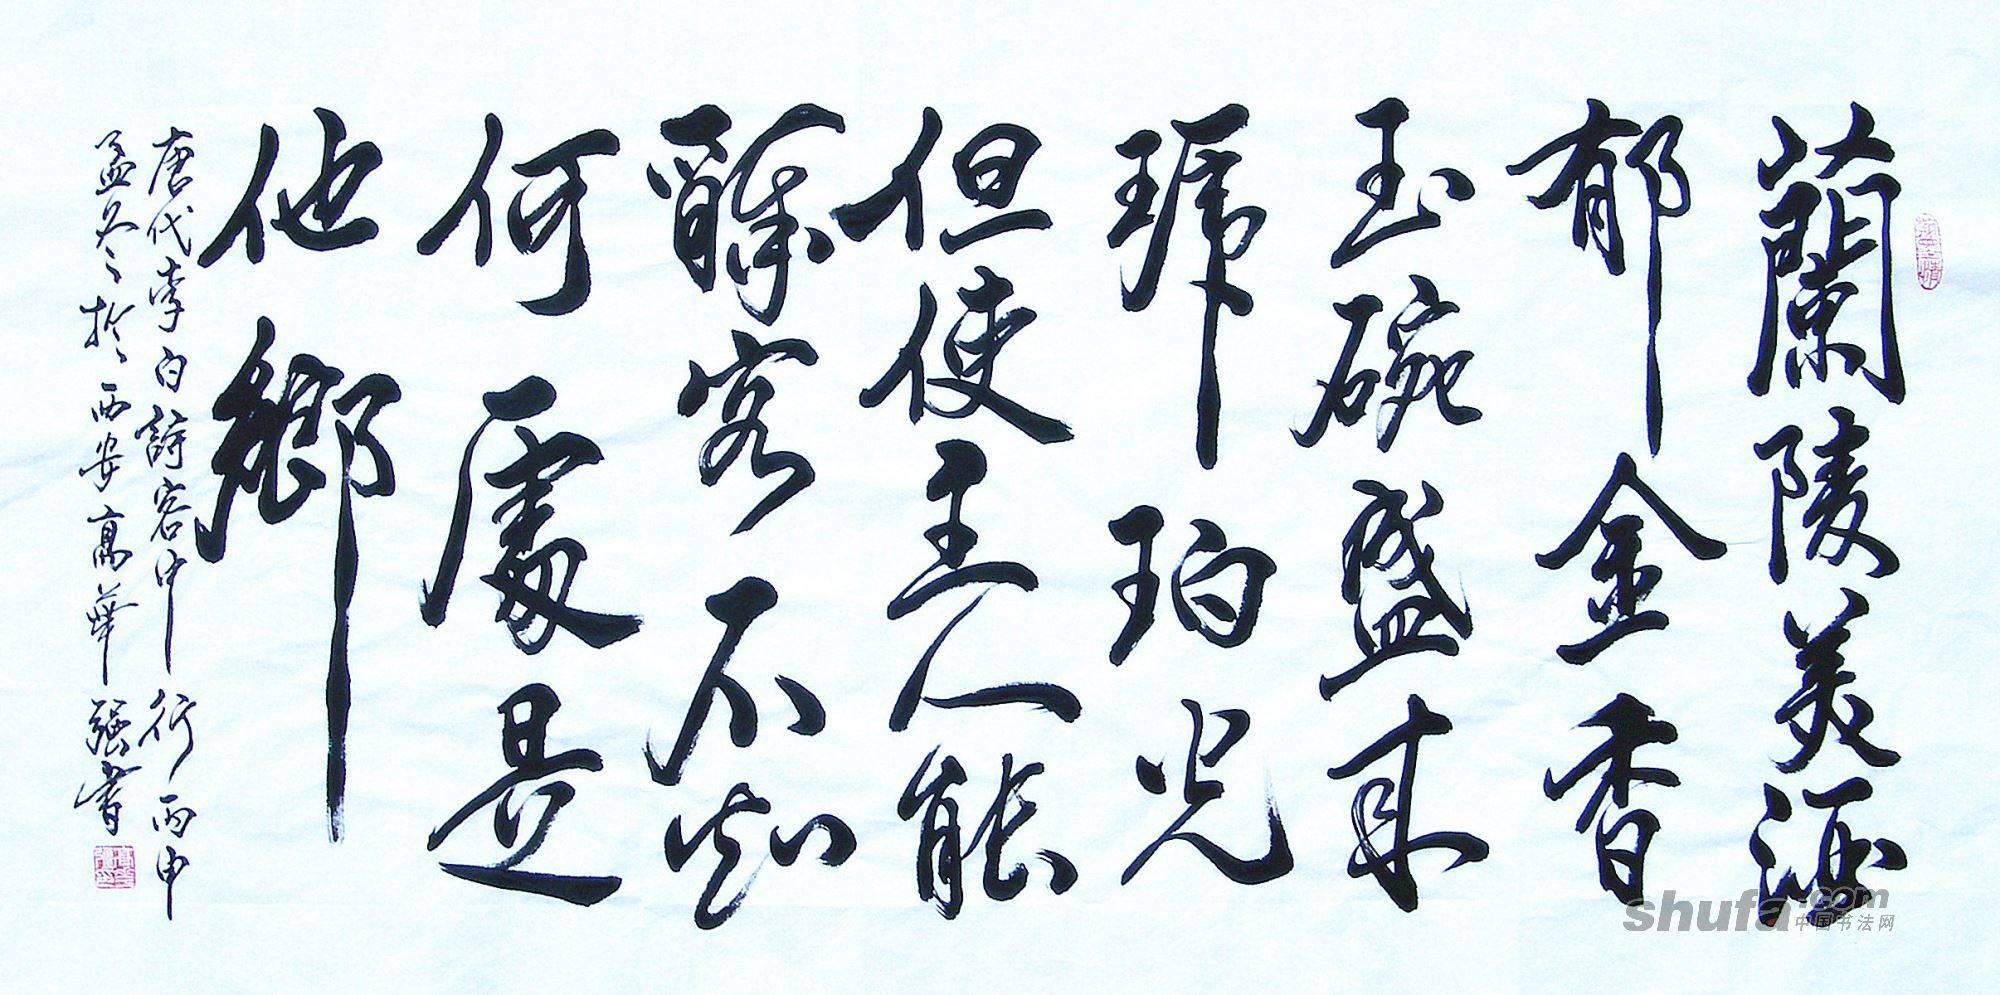 蘭陵美酒
郁金香
玉碗盛来
琥珀光
但使主人能
醉客不知
何處是
他鄉
唐代李白詩客中行丙申
孟冬於西安高華强書
shufa.com
中国书法网